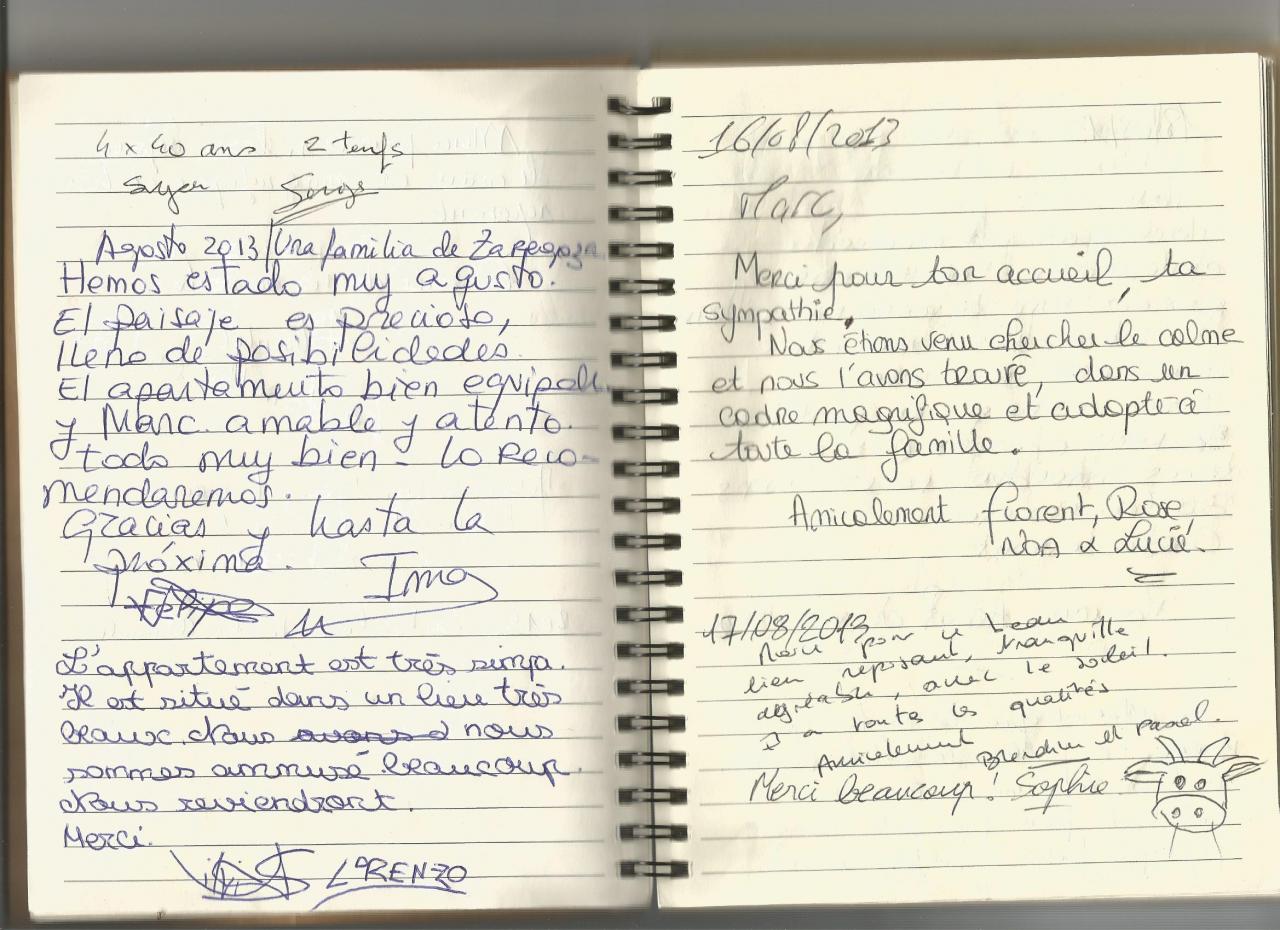 4 x 40 ans 2
Serge
Agosto 2013 / Una familia de Zaragoza.
Hemos estado muy agusto.
El paisaje es precioso,
lleno de posibilidades.
El apartamento bien equipado
y Marc. amable y atento.
todo muy bien - Lo Reco-
mendaremos.
Gracias y hasta la
próxima.
Felipe Inma
L'appartement est très simpa.
Il est situé dans un lieu très
beaux. Nous avons nous
sommes ammusé beaucoup.
Nous reviendront.
Merci.
LORENZO
16/08/2013
Marc,
Merci pour ton accueil, ta
sympathie,
Nous étions venu chercher le calme
et nous l'avons trouvé, dans un
cadre magnifique et adapté à
toute la famille.
Amicalement Florent, Rose
Noa & Lucie.
17/08/2013
Merci pour un beau
lieu reposant, tranquille
agréable, avec le soleil.
Il a toutes les qualités
Amicalement Blandine et Pascal.
Merci beaucoup! Sophie